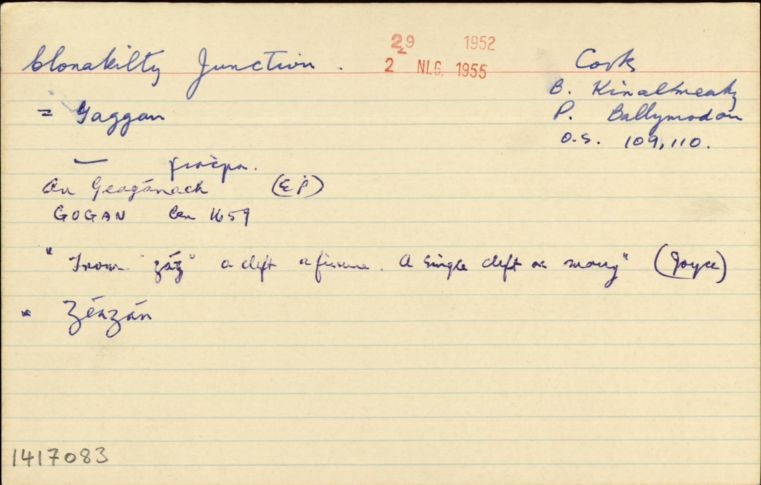 Clonakilty Junction.
29 1952
2 NLG. 1955
Cork
B. Kinalmeaky
P. Ballymodan
O.S. 109, 110.
= Gaggan
—
An Geagánach (EP)
GOGAN Cen 1659
"From gág a cleft a fissure. A single cleft or many" (Joyce)
* Géagán
1417083